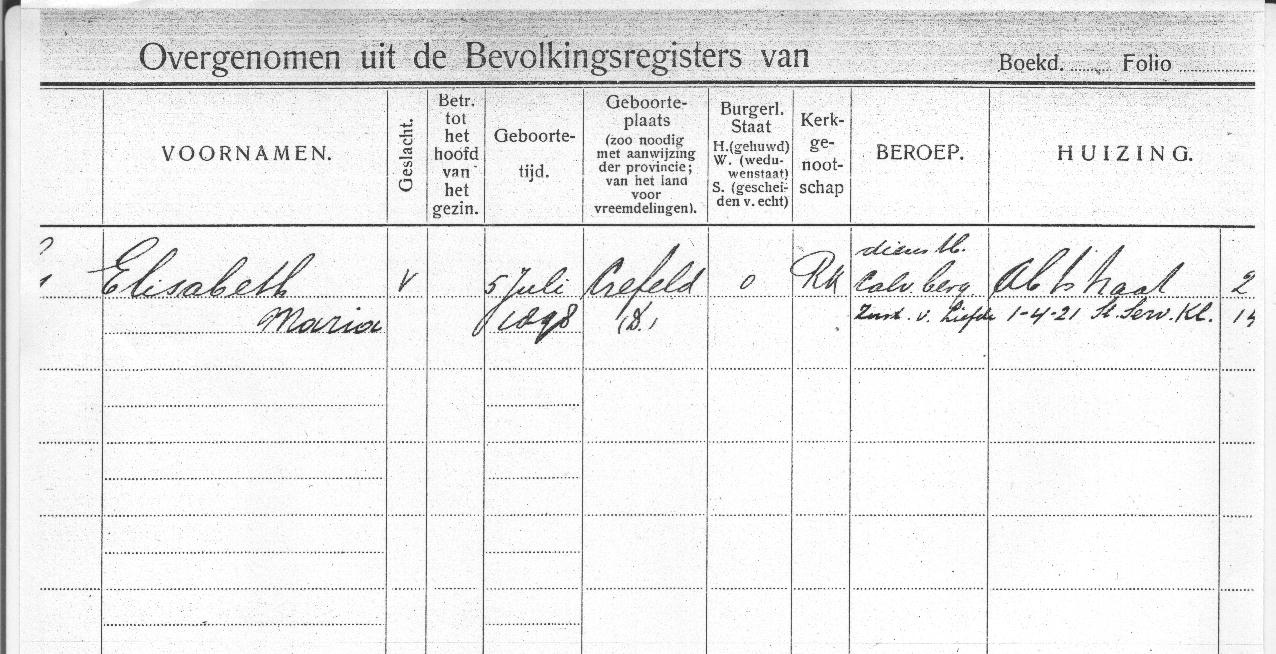 Overgenomen uit de Bevolkingsregisters van
Boekd. Folio
VOORNAMEN.
Geslacht.
Betr.
tot
het
hoofd
van
het
gezin.
Geboorte-
tijd.
Geboorte-
plaats
(zoo noodig
met aanwijzing
der provincie;
van het land
voor
vreemdelingen).
Burgerl.
Staat
H.(gehuwd)
W. (wedu-
wenstaat)
S. (geschei-
den v. echt)
Kerk-
ge-
noot-
schap
BEROEP.
HUIZING.
Elisabeth
Maria
V
5 Juli
1898
Crefeld
(D.)
0
RK
dienstb.
Calv. berg
Zust. v. Liefde
Abtstraat 2
1-4-21 St. Serv. Kl. 14